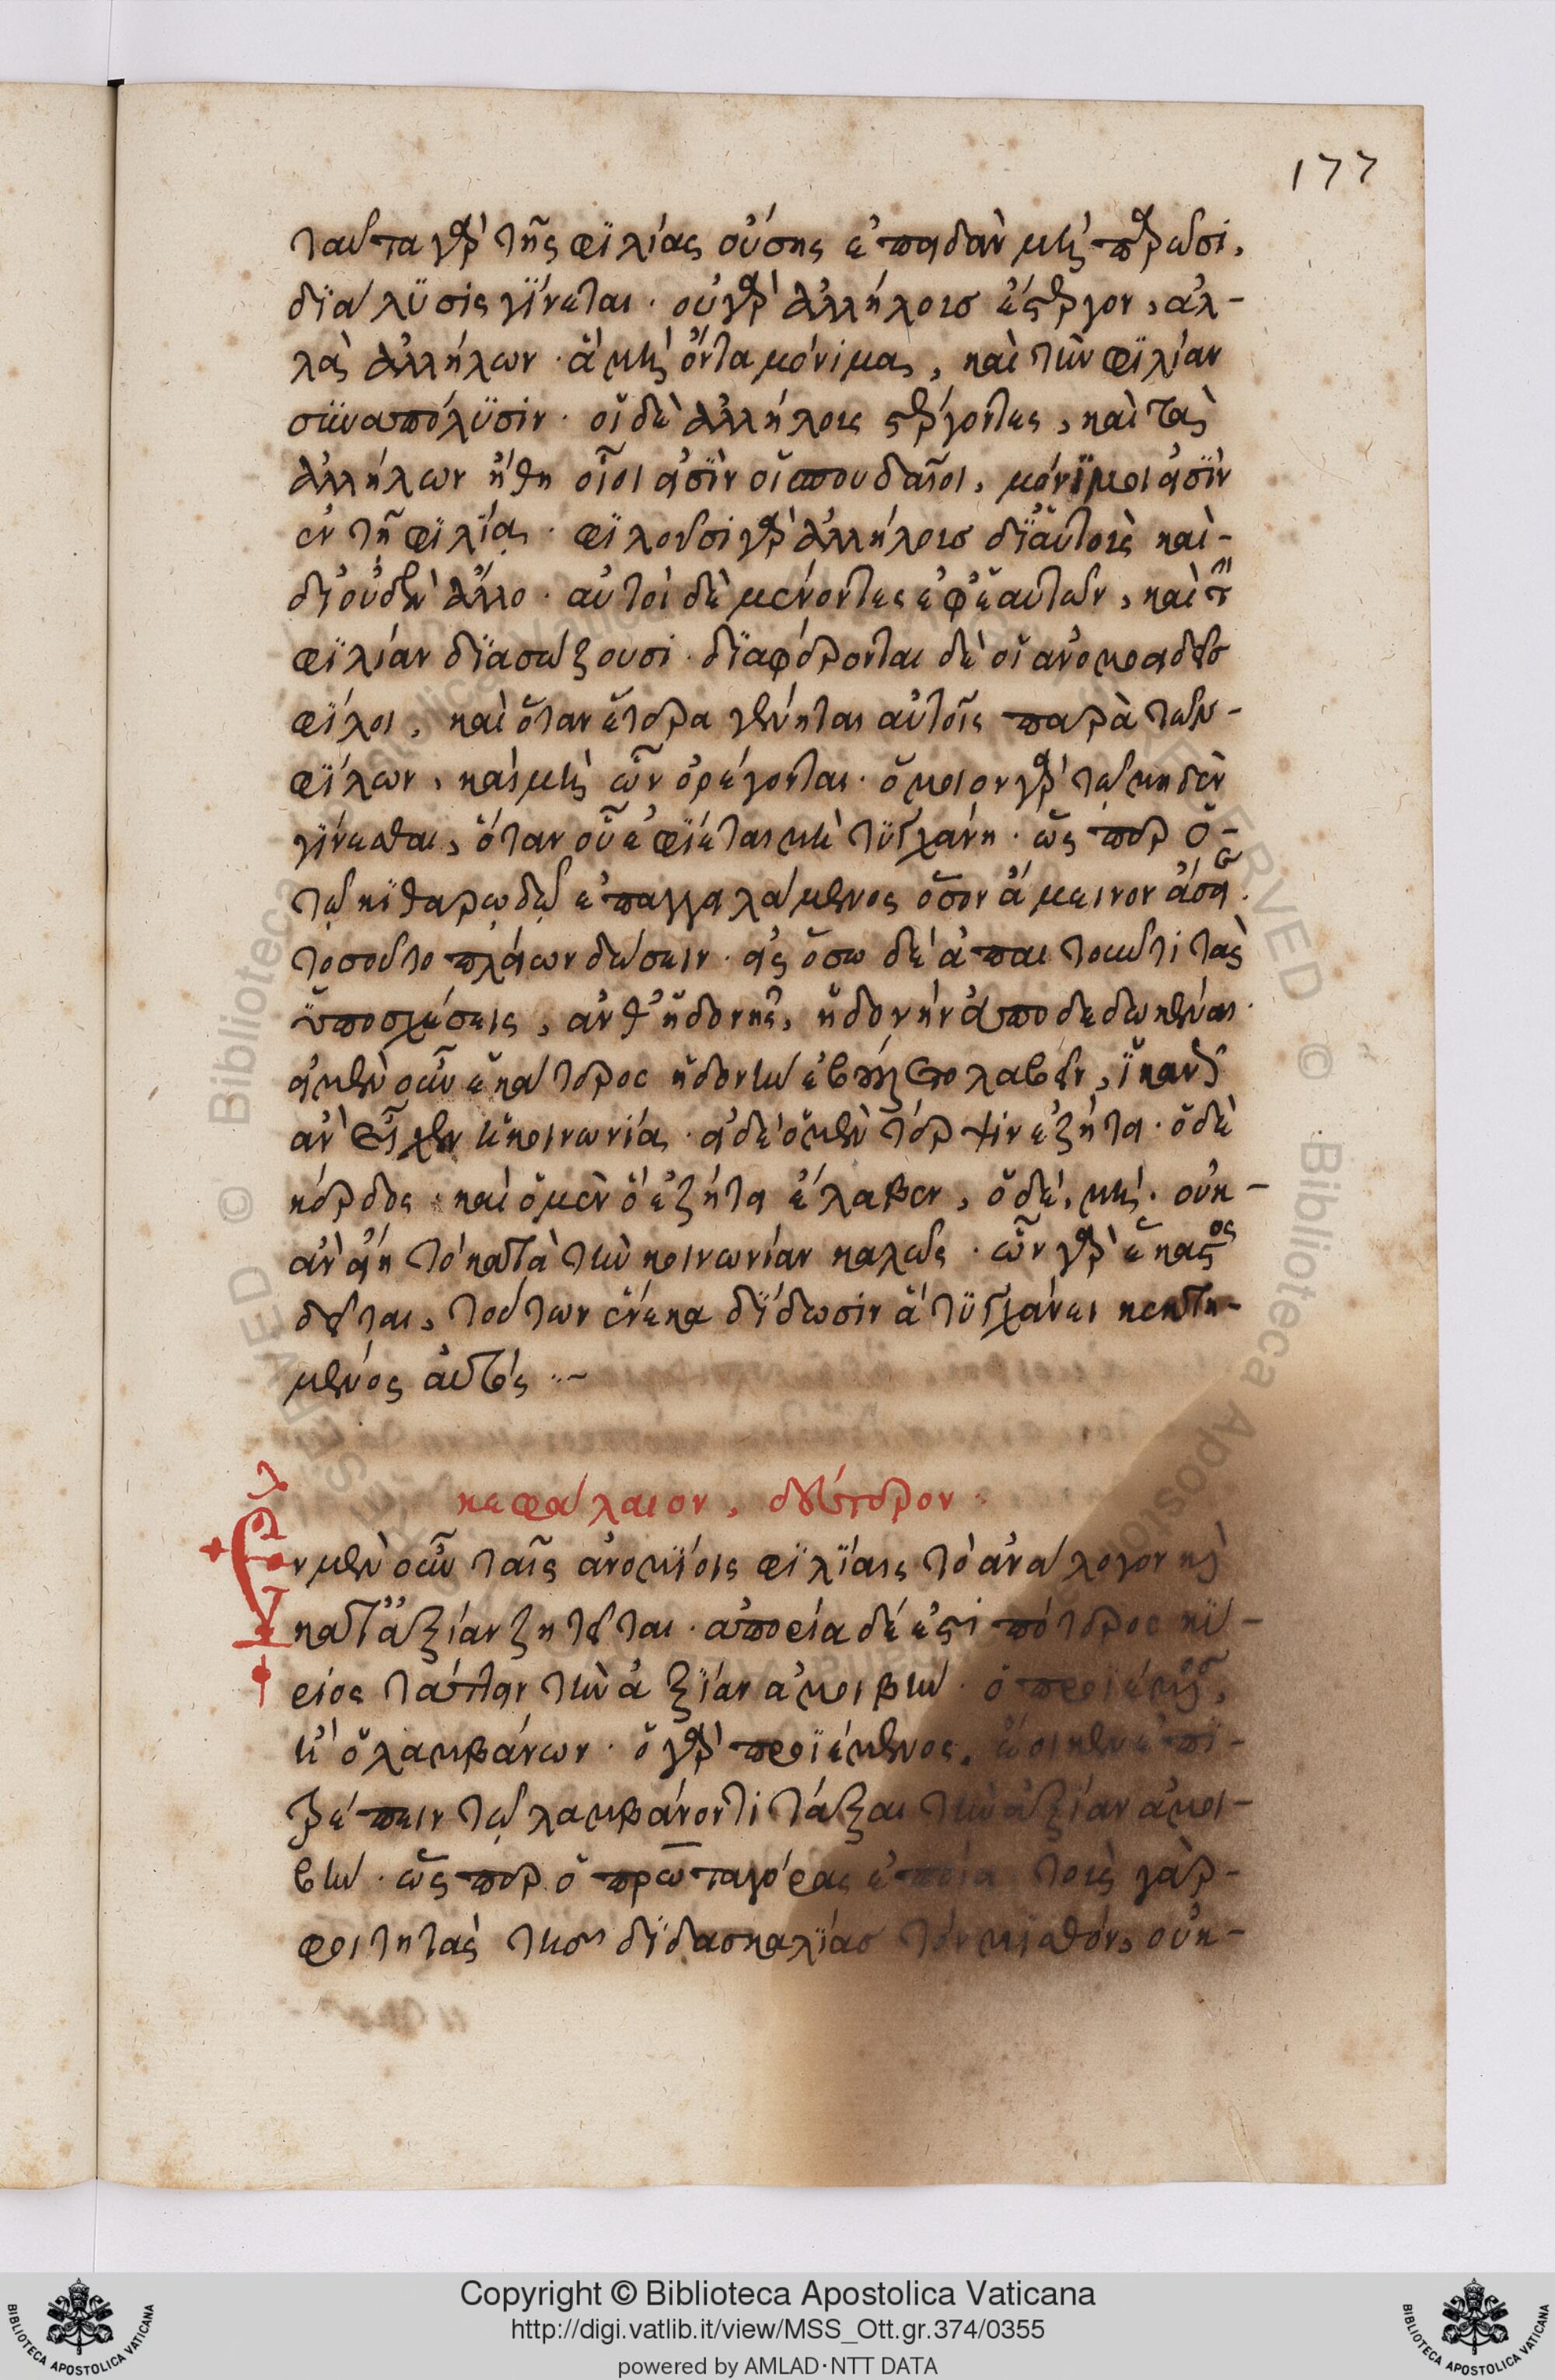 177
ταῦτα γὰρ τῆς φιλίας οὔσης ἐπειδὰν μὴ παρῶσι,
διάλυσις γίνεται. οὐ γὰρ ἀλλήλους ἔστεργον, ἀλ-
λὰ ἀλλήλων ἃ μὴ ὄντα μόνιμα, καὶ τὴν φιλίαν
συναπόλυσιν. οἱ δὲ ἀλλήλους στέργοντες, καὶ τὰ
ἀλλήλων ἤθη οἷοί εἰσὶν οἱ σπουδαῖοι, μόνιμοι εἰσὶν
ἐν τῇ φιλίᾳ. φιλοῦσι γὰρ ἀλλήλους δι' αὑτοὺς καὶ-
δι' οὐδὲν ἄλλο. αὐτοὶ δὲ μένοντες ἐφ' ἑαυτῶν, καὶ τὴν
φιλίαν διασώζουσι. διαφέρονται δὲ οἱ ἀνομοειδεῖς
φίλοι, καὶ ὅταν ἕτερα γένηται αὐτοῖς παρὰ τῶν-
φίλων, καὶ μὴ ὧν ὀρέγονται. ὅμοιον γὰρ τῷ μηδὲν
γίνεσθαι, ὅταν οὗ ἐφίεται μὴ τυγχάνῃ. ὥσπερ ὁ-
τῷ κιθαρωδῷ ἐπαγγειλάμενος ὅσον ἄμεινον ἄσει.
τοσοῦτο πλείων δώσειν. εἰς ἕω δὲ ἀπαιτοῦντι τὰς
ὑποσχέσεις, ἀνθ' ἡδονῆς, ἡδονὴν ἀποδεδωκέναι.
εἰ μὲν οὖν ἑκάτερος ἡδονὴν ἐβούλετο λαβεῖν, ἱκανῶς
ἂν εἶχεν ἡ κοινωνία. εἰ δὲ ὁ μὲν τέρψιν ἐζήτει. ὁ δὲ
κέρδος. καὶ ὁ μὲν ὃ ἐζήτει ἔλαβεν, ὁ δὲ, μὴ. οὐκ-
ἂν εἴη τὸ κατὰ τὴν κοινωνίαν καλῶς. ὧν γὰρ ἕκαστος
δεῖται, τούτων ἕνεκα δίδωσιν ἃ τυγχάνει κεκτη-
μένος αὐτός
κεφάλαιον, δεύτερον
Ἐν μὲν οὖν ταῖς ἀνομοίοις φιλίαις τὸ ἀνάλογον καὶ
κατ' ἀξίαν ζητεῖται. ἀπορία δέ ἐστι πότερος κύ-
ριός τάττειν τὴν ἀξίαν ἀμοιβήν. ὁ προιέμενος,
ἢ ὁ λαμβάνων. ὁ γὰρ προιέμενος, ἔοικεν ἐπι-
τρέπειν τῷ λαμβάνοντι τάξαι τὴν ἀξίαν ἀμοι-
βήν. ὥσπερ ὁ πρωταγόρας ἐποίει τοὺς γὰρ-
φοιτητὰς τῆς διδασκαλίας τὸν μισθὸν, οὐκ-
Copyright © Biblioteca Apostolica Vaticana
http://digi.vatlib.it/view/MSS_Ott.gr.374/0355
powered by AMLAD·NTT DATA